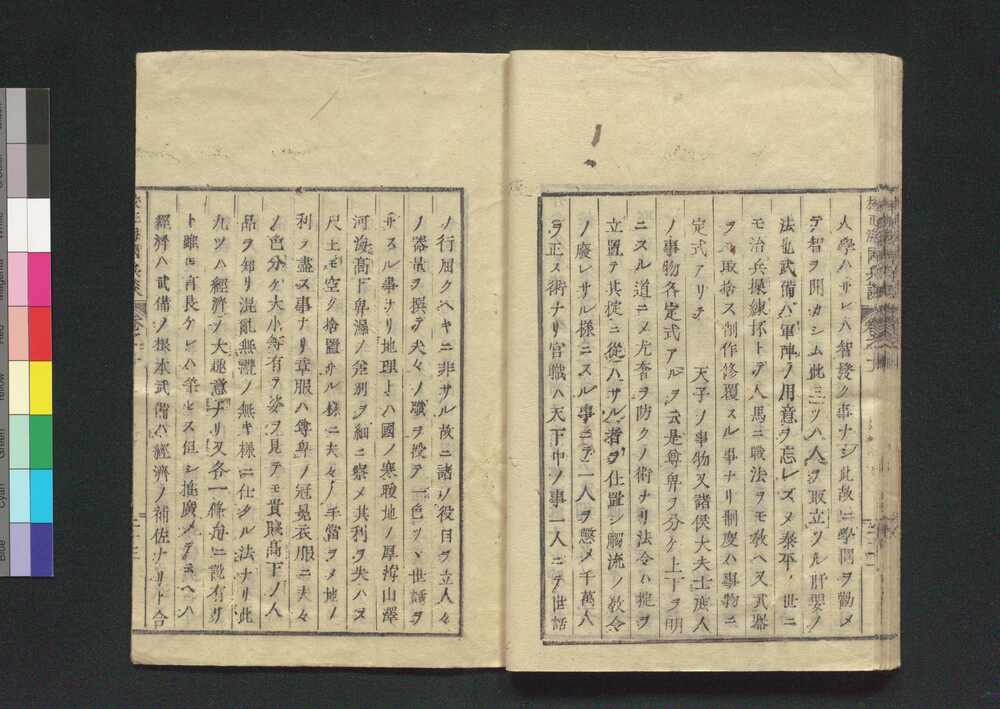 人學ハサレハ智發ク事ナシ此故ニ學問ヲ勸メ
テ智ヲ開カシム此三ツハ人ヲ取立ツル肝要ノ
法也武備ハ軍陣ノ用意ヲ忘レズメ泰平ノ世ニ
モ治兵操練抔トテ人馬ニ戰法ヲモ敎ヘ又武器
ヲモ取捨ス制作修覆スル事ナリ制度ハ事物ニ
定式アリテ 天子ノ事物又諸侯大夫士庶人
ノ事物各定式アルヲ云是尊卑ヲ分ケ上下ヲ明
ニスル道ニメ尤奢ヲ防クノ術ナリ法令ハ掟ヲ
立置テ其掟ニ從ハサル者ヲ仕置シ觸流ノ敎令
ノ廢レサル様ニスル事ニテ一人ヲ懲メ千萬人
ヲ正ス術ナリ官職ハ天下中ノ事一人ニテ世話
ノ行屈クヘキニ非サル故ニ諸ノ役目ヲ立人々
ノ器量ヲ撰テ夫々ノ職ヲ授テ一色ツヽ世話ヲ
サスル事ナリ地理トハ國ノ寒暖地ノ厚薄山澤
河海高下卑濕ノ差別ヲ細ニ察メ其利ヲ失ハス
尺土モ空ク捨置サル様ニ夫々ノ手當ヲメ地ノ
利ヲ盡ス事ナリ章服ハ尊卑ノ冠冕衣服ニ夫々
ノ色分ケ大小等有テ姿ヲ見テモ貴賤高下ノ人
品ヲ知リ混亂無禮ノ無キ様ニ仕タル法ナリ此
九ツハ經濟ノ大趣意ナリ又各一條毎ニ說有リ
ト雖モ言長ケレハ筆セス但シ搖廣メテ云ヘハ
經濟ハ武備ノ根本武備ハ經濟ノ補佐ナリト合